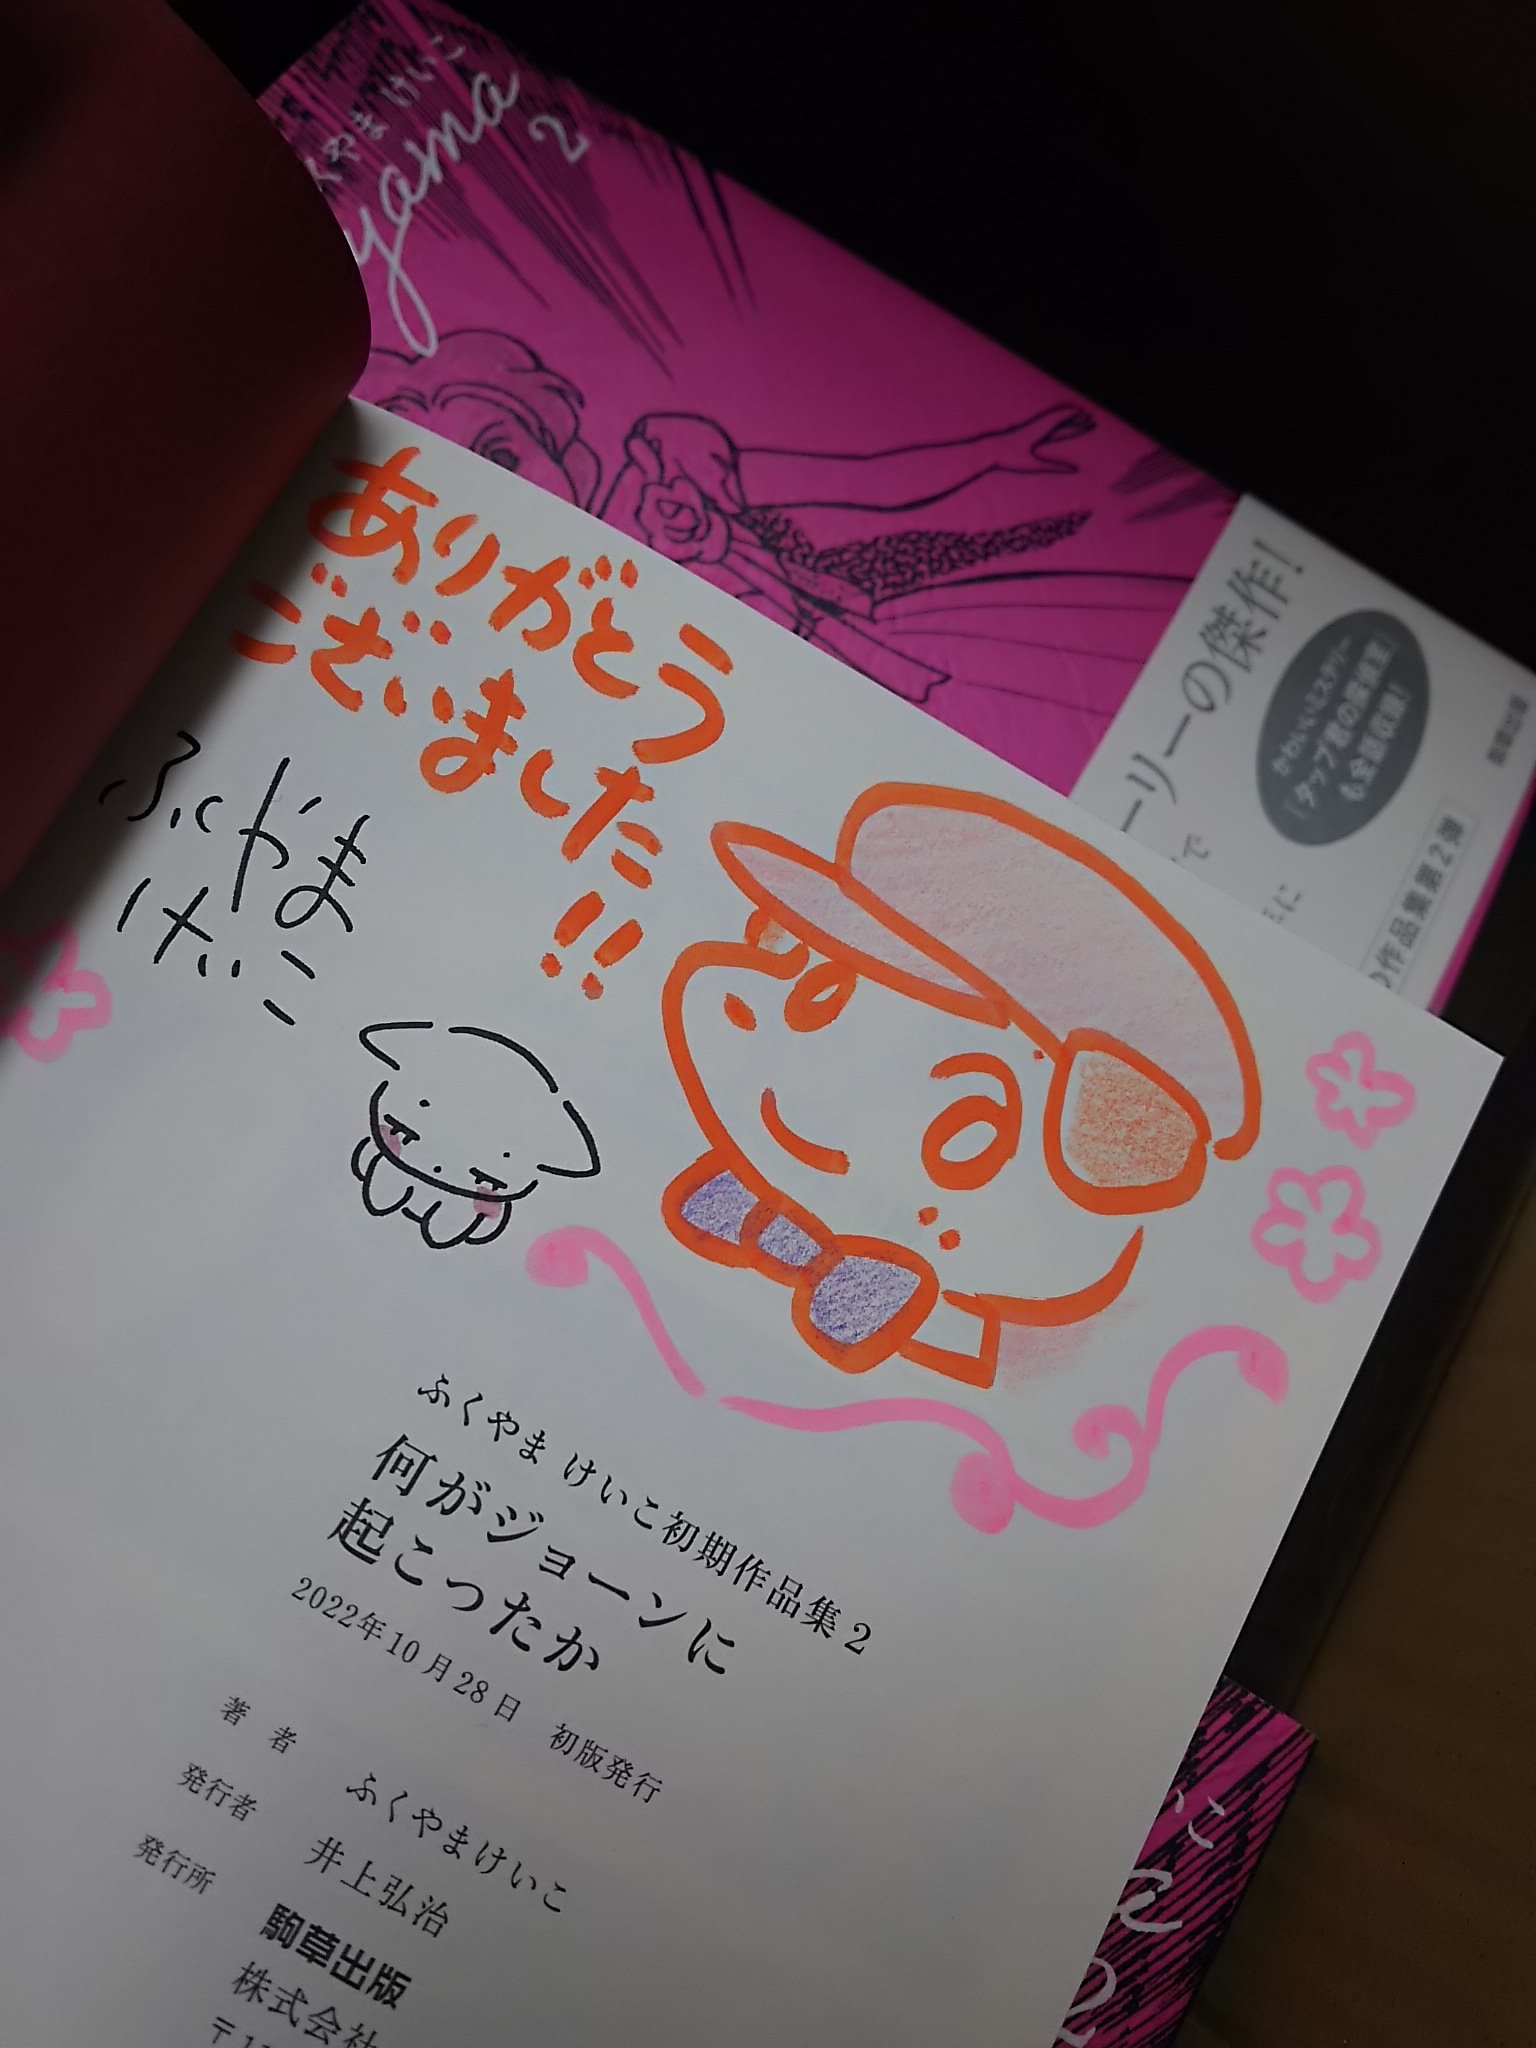 やまけいこ
yama
2
ーリーの傑作!
かわいいミステリー
「タップ君の探偵室」
も全話収録!
で
に
の作品集第2弾
駒草出版
ありがとう
ございました!!
ふくやま
けいこ
ふくやま けいこ初期作品集 2
何がジョーンに
起こったか
2022年10月28日 初版発行
著 者 ふくやまけいこ
発行者 井上弘治
発行所 駒草出版
株式会社
〒1
いこ
a
2